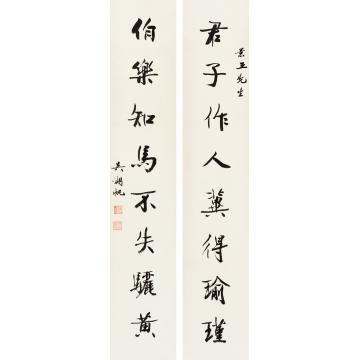 君子作人冀得瑜瑾
景玉先生
伯樂知馬不失驪黃
吳湖帆